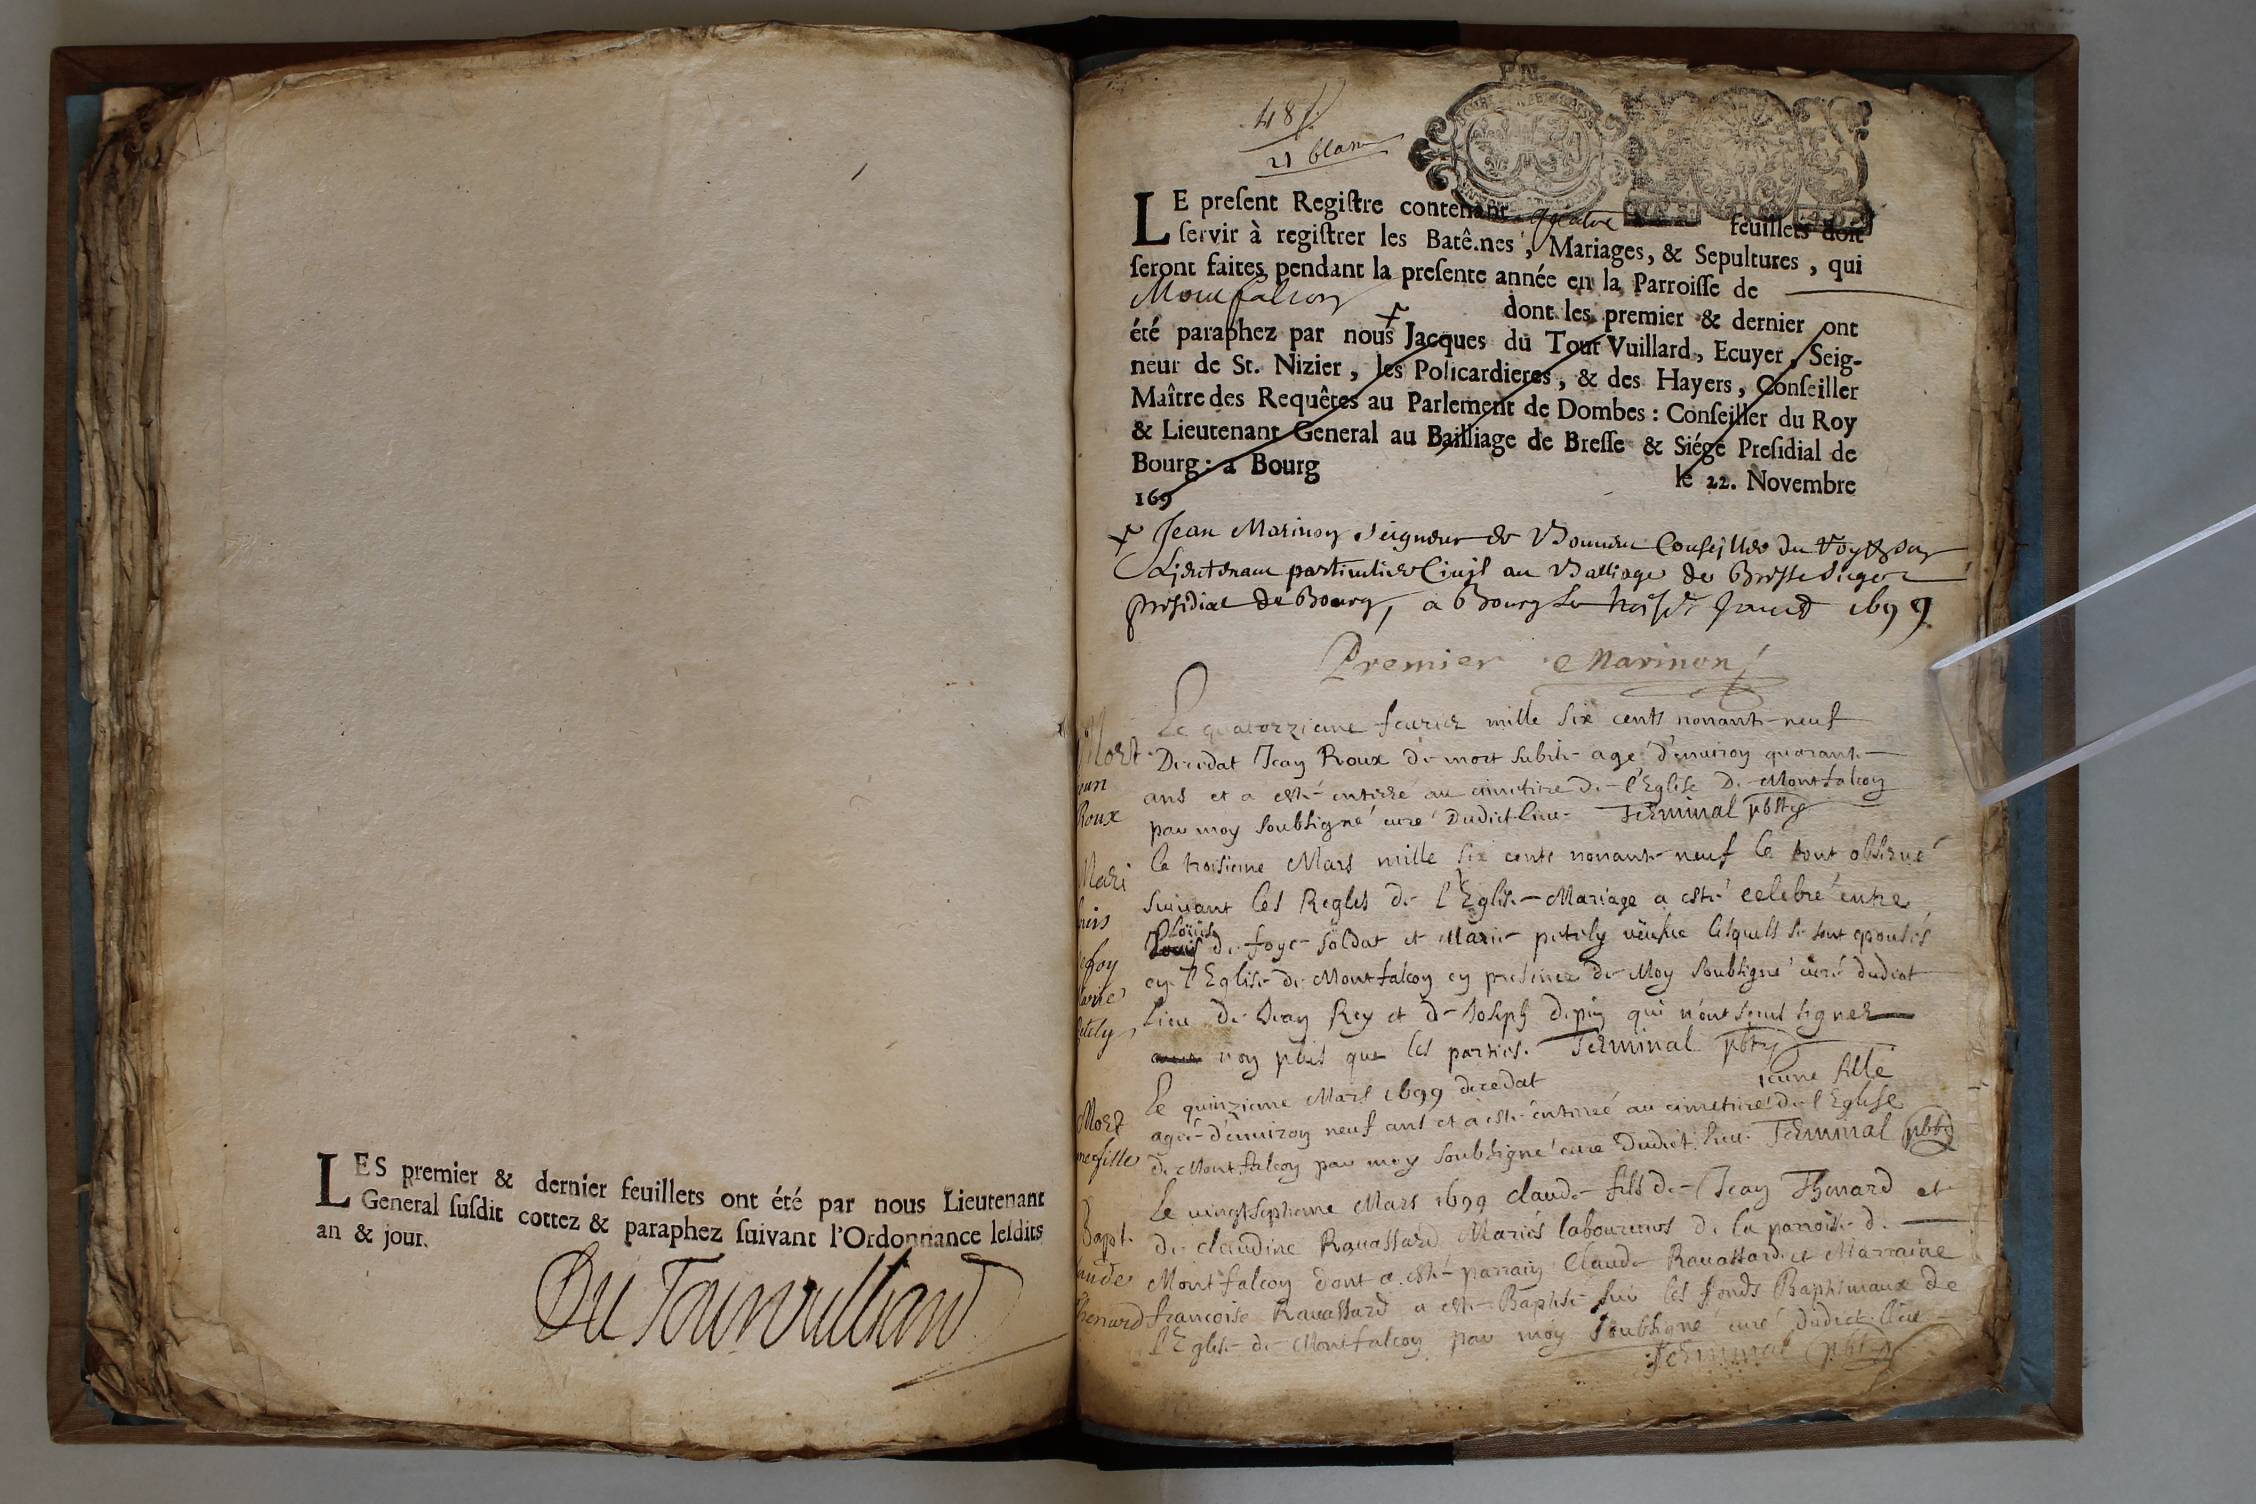 LES premier & dernier feuillets ont été par nous Lieutenant
General ſuſdit cottez & paraphez ſuivant l'Ordonnance leſdits
an & jour.
Du Tourvulliard
48
21 blanc
LE preſent Regiſtre contenant quatre feuillets doit
ſervir à regiſtrer les Batêmes, Mariages, & Sepultures, qui
ſeront faites pendant la preſente année en la Parroiſſe de
Montfalcon dont les premier & dernier ont
été paraphez par nous Jacques du Tour Vuillard, Ecuyer, Seig-
neur de St. Nizier, les Policardieres, & des Hayers, Conſeiller
Maître des Requêtes au Parlement de Dombes: Conſeiller du Roy
& Lieutenant General au Bailliage de Breſſe & Siége Preſidial de
Bourg: a Bourg le 22. Novembre
169
Jean Marinon Seigneur de Conseiller du Roy
Lieutenant particulier Civil au Balliage de Bresse Siege
presidial de Bourg, a Bourg le 1699
Premier Marinon
Le quatorzieme feurier mille six cents nonante neuf
Decedat Jean Roux de mort subite agé d'enuiron quarante
ans et a esté enterré au cimetiere de l'Eglise de Montfalcon
par moy soubsigné curé dudict lieu Terminal pbtre
Mort
Jean
Roux
Le troisieme Mars mille six cents nonante neuf le tout obserué
suiuant les Regles de l'Eglise Mariage a esté celebré entre
Loüis de foye soldat et Marie petely ueufue lesquels se sont epousés
en l'Eglise de Montfalcon en presence de Moy soubsigné curé dudict
lieu de Jean Rey et de Joseph depin qui n'ont sceus signer
non plus que les parties. Terminal pbtre
Mari
petely
Le quinzieme Mars 1699 decedat jeune fille
agée d'enuiron neuf ans et a esté enterreé au cimetiere de l'Eglise
de Montfalcon par moy soubsigné curé dudict lieu Terminal pbtre
Mort
une fille
Le uingtseptieme Mars 1699 claude fils de Jean Thenard et
de claudine Rauassard Mariés laboureurs de la parroisse de
Montfalcon dont a esté parrain Claude Rauassard et Marraine
francoise Rauassard a esté Baptisé sur les fonds Baptismaux de
l'Eglise de Montfalcon par moy soubsigné curé dudict lieu
Terminal pbtre
Bapt.
claude
Thenard